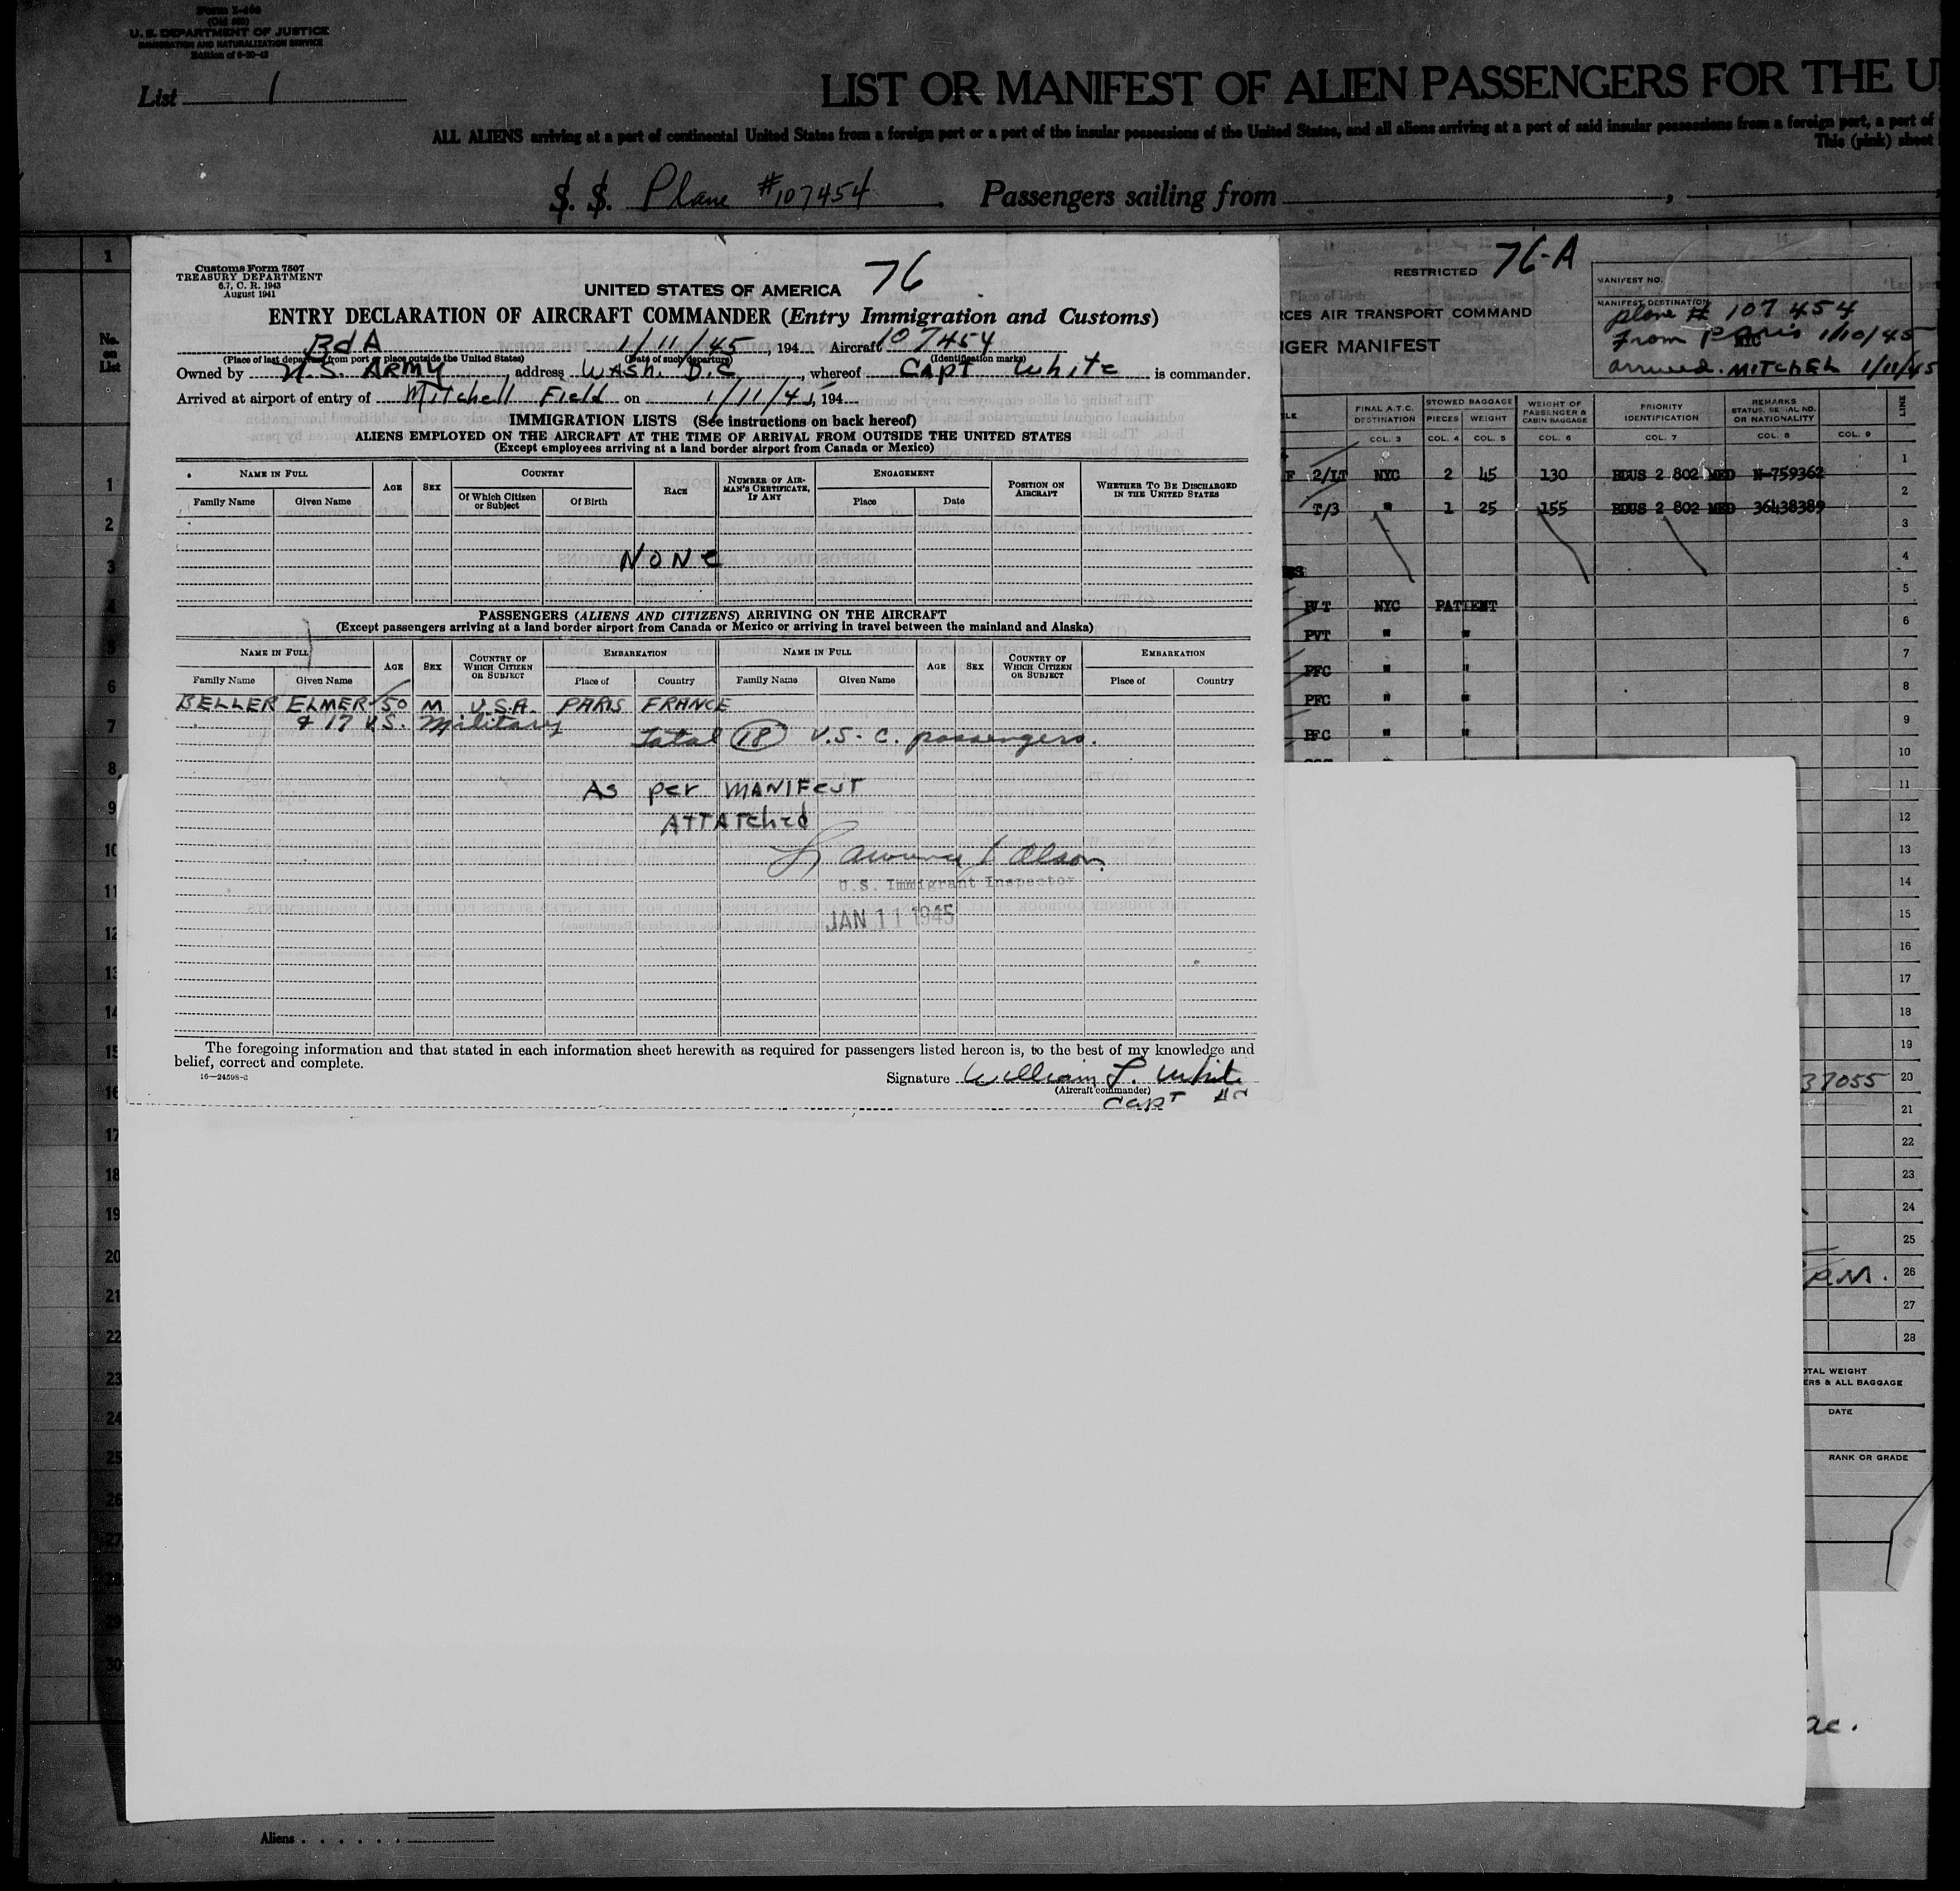 Form I-466
(Old 500)
U. S. DEPARTMENT OF JUSTICE
IMMIGRATION AND NATURALIZATION SERVICE
List 1
LIST OR MANIFEST OF ALIEN PASSENGERS FOR THE U
ALL ALIENS arriving at a port of continental United States from a foreign port or a port of the insular possessions of the United States, and all aliens arriving at a port of said insular possessions from a foreign port, a port of
This (pink) sheet
S. S. Plane #107454 Passengers sailing from
No. on List
Customs Form 7507
TREASURY DEPARTMENT
6.7, C. R. 1943
August 1941
76
UNITED STATES OF AMERICA
ENTRY DECLARATION OF AIRCRAFT COMMANDER (Entry Immigration and Customs)
BdA 1/11/45, 194 Aircraft 107454
(Place of last departure from port or place outside the United States) (Date of such departure) (Identification marks)
Owned by U.S. ARMY, address WASH. D.C, whereof CAPT White is commander.
Arrived at airport of entry of Mitchell Field on 1/11/45, 194
IMMIGRATION LISTS (See instructions on back hereof)
ALIENS EMPLOYED ON THE AIRCRAFT AT THE TIME OF ARRIVAL FROM OUTSIDE THE UNITED STATES
(Except employees arriving at a land border airport from Canada or Mexico)
NAME IN FULL AGE SEX COUNTRY RACE NUMBER OF AIRMAN'S CERTIFICATE, IF ANY ENGAGEMENT POSITION ON AIRCRAFT WHETHER TO BE DISCHARGED IN THE UNITED STATES
Family Name Given Name Of Which Citizen or Subject Of Birth Place Date
NONE
PASSENGERS (ALIENS AND CITIZENS) ARRIVING ON THE AIRCRAFT
(Except passengers arriving at a land border airport from Canada or Mexico or arriving in travel between the mainland and Alaska)
NAME IN FULL AGE SEX COUNTRY OF WHICH CITIZEN OR SUBJECT EMBARKATION NAME IN FULL AGE SEX COUNTRY OF WHICH CITIZEN OR SUBJECT EMBARKATION
Family Name Given Name Place of Country Family Name Given Name Place of Country
BELLER ELMER 50 M U.S.A. PARIS FRANCE
& 17 U.S. Military
Total 18 U.S.C. passengers.
As per MANIFEST
ATTATched
Lawrence J Olson
U.S. Immigrant Inspector
JAN 11 1945
The foregoing information and that stated in each information sheet herewith as required for passengers listed hereon is, to the best of my knowledge and
belief, correct and complete.
16—24598-2
Signature William L. White
(Aircraft commander)
Capt AC
RESTRICTED 76-A
RCES AIR TRANSPORT COMMAND
NGER MANIFEST
MANIFEST NO.
MANIFEST DESTINATION
plane # 107454
from Paris 1/10/45
arrived. MITCHEL 1/11/45
FINAL A.T.C. DESTINATION STOWED BAGGAGE WEIGHT OF PASSENGER & CABIN BAGGAGE PRIORITY IDENTIFICATION REMARKS STATUS, SERIAL NO. OR NATIONALITY LINE
PIECES WEIGHT
COL. 3 COL. 4 COL. 5 COL. 6 COL. 7 COL. 8 COL. 9
F 2/LT NYC 2 45 130 BDUS 2 802 MED N-759362
T/3 " 1 25 155 BDUS 2 802 MED 36438389
PVT NYC PATIENT
PVT " "
PFC " "
PFC " "
PFC " "
37055
P.M.
OTAL WEIGHT
ERS & ALL BAGGAGE
DATE
RANK OR GRADE
ac.
Aliens